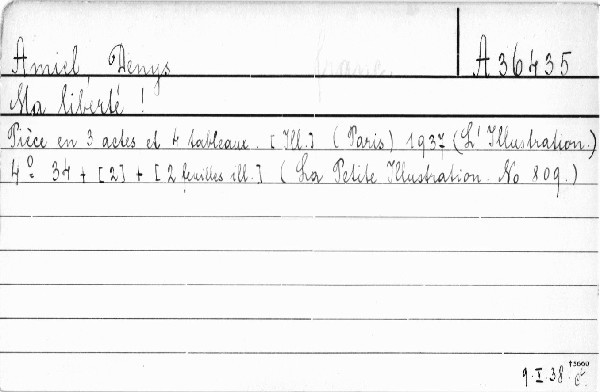 Amiel, Denys
A 36435
Ma liberté !
Pièce en 3 actes et 4 tableaux. [Ill.] (Paris) 1937 (L'Illustration.)
4º. 34 + [2] + [2 feuilles ill.] (La Petite Illustration. No 809.)
9.I.38.